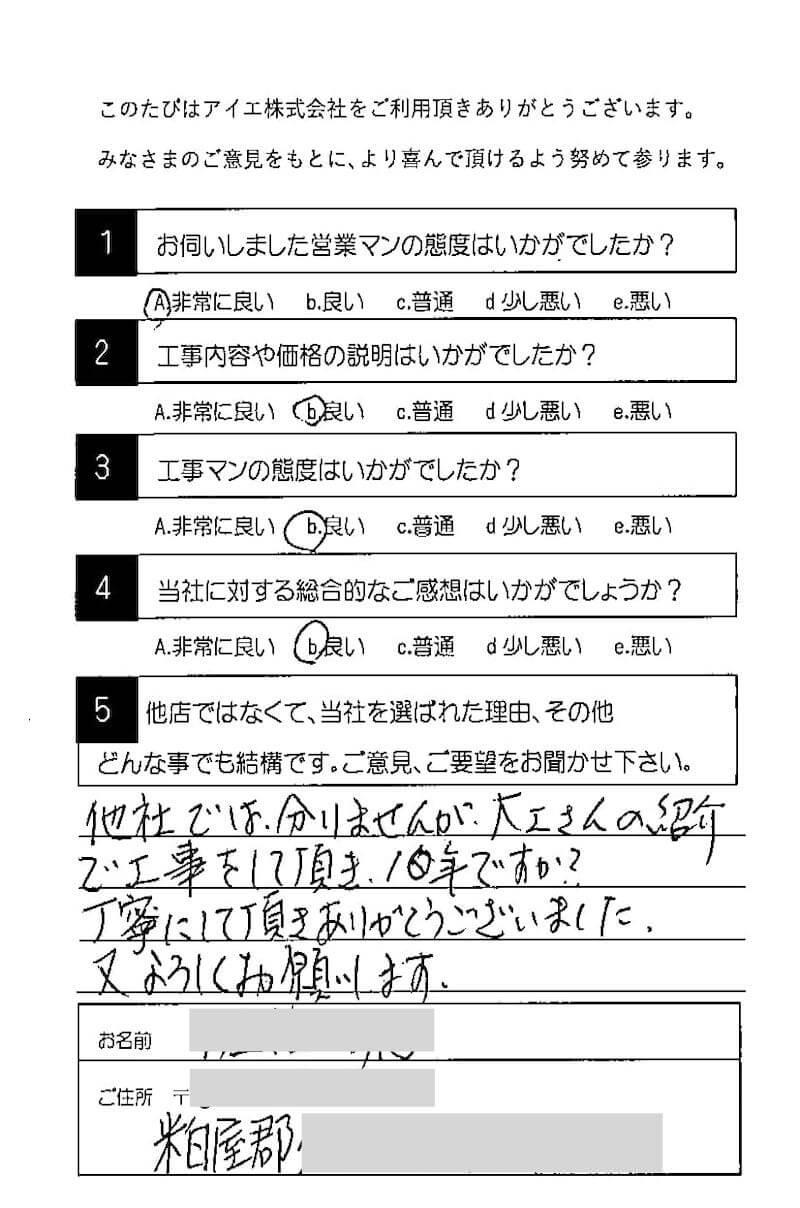 このたびはアイエ株式会社をご利用頂きありがとうございます。
みなさまのご意見をもとに、より喜んで頂けるよう努めて参ります。
1 お伺いしました営業マンの態度はいかがでしたか？
A.非常に良い b.良い c.普通 d 少し悪い e.悪い
2 工事内容や価格の説明はいかがでしたか？
A.非常に良い b.良い c.普通 d 少し悪い e.悪い
3 工事マンの態度はいかがでしたか？
A.非常に良い b.良い c.普通 d 少し悪い e.悪い
4 当社に対する総合的なご感想はいかがでしょうか？
A.非常に良い b.良い c.普通 d 少し悪い e.悪い
5 他店ではなくて、当社を選ばれた理由、その他
どんな事でも結構です。ご意見、ご要望をお聞かせ下さい。
他社では、分りませんが、大工さんの紹介
で工事をして頂き、10年ですか?
丁寧にして頂きありがとうございました。
又よろしくお願いします。
お名前
ご住所 〒
粕屋郡